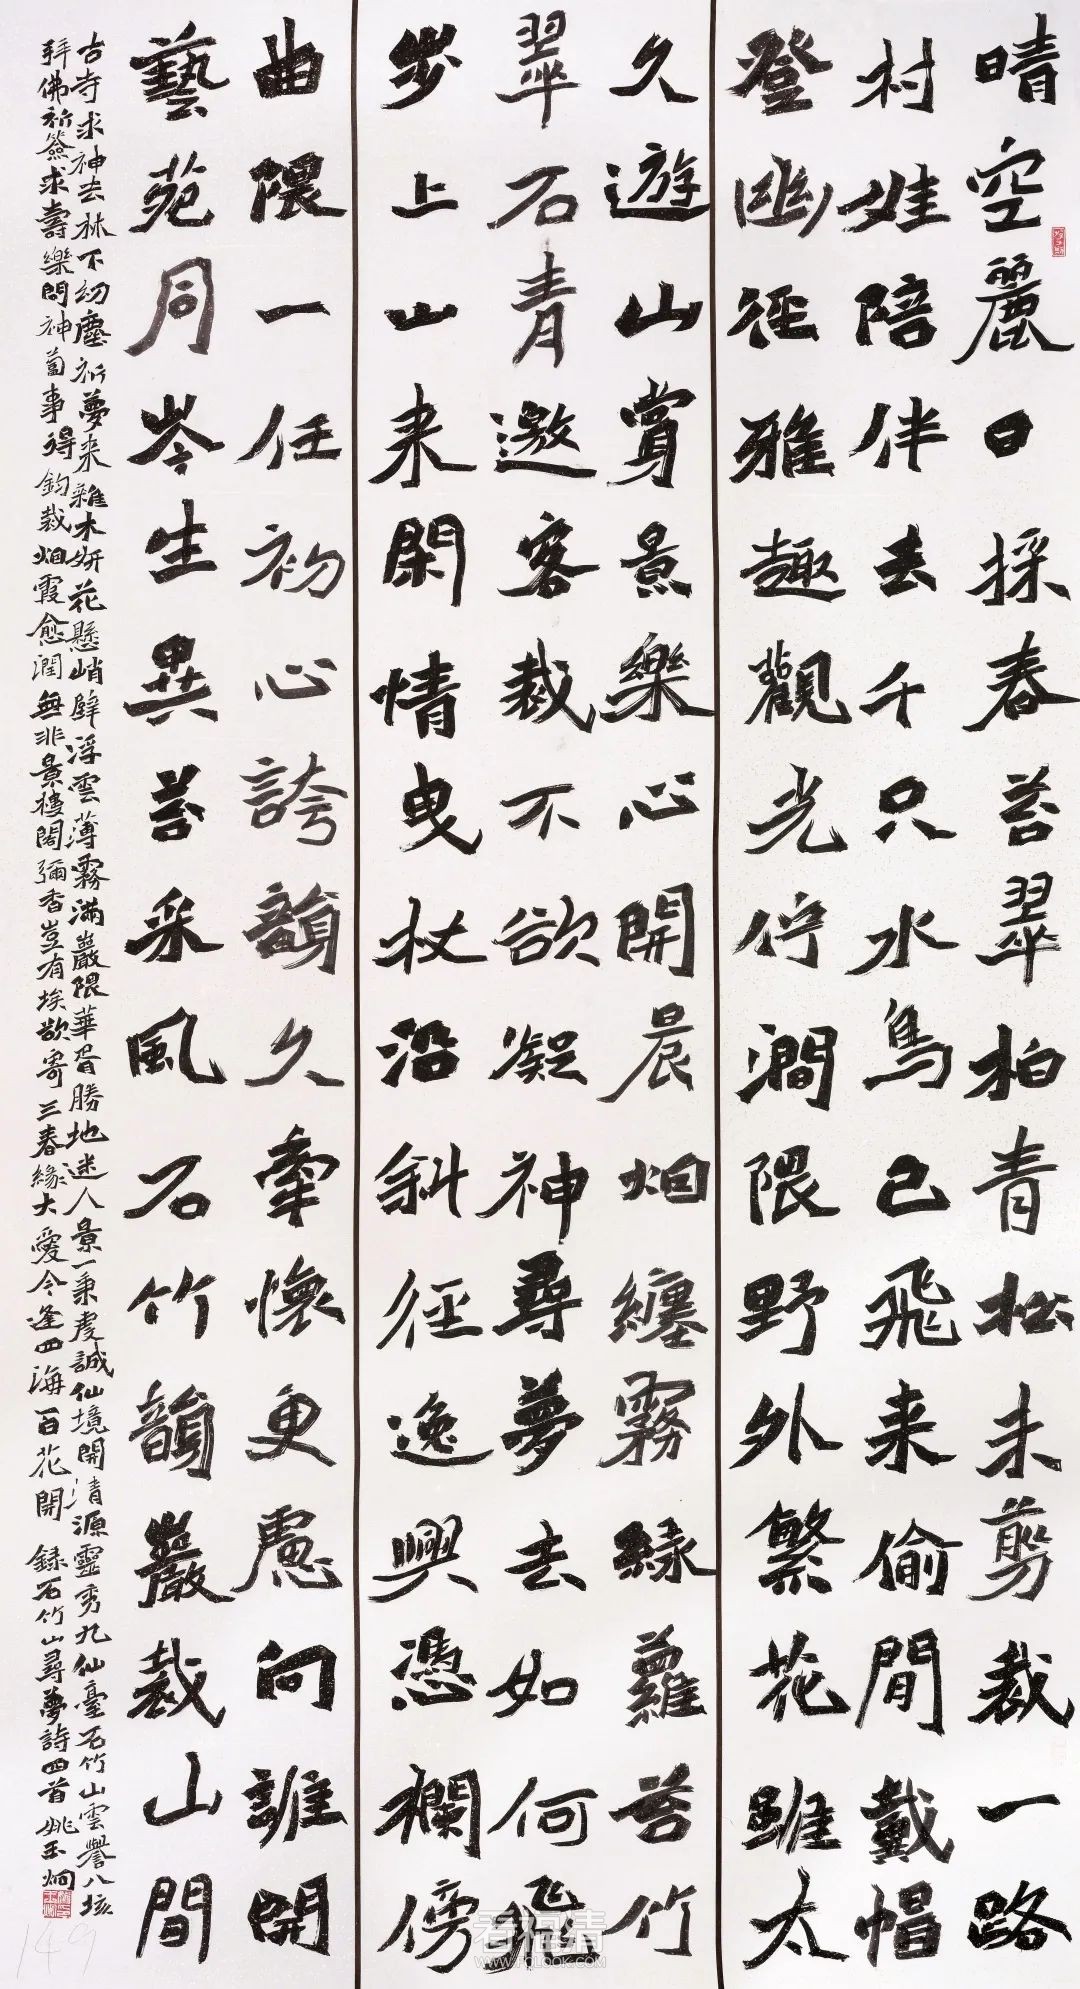 晴空麗日採春苔翠柏青松未剪裁一路
村娃陪伴去千只水鳥已飛来偷閒戴帽
登幽径雅趣觀光佇澗隈野外繁花雖太
久遊山賞景樂心開晨烟纏霧緑蘿苔竹
翠石青邀客裁不欲凝神尋夢去如何飛
步上山来閑情曳杖沿斜径逸興憑欄傍
曲隈一任初心誇韻久牽懷更慮向誰開
藝苑同岑生異苔采風石竹韻巖裁山間
古寺求神去不紉塵祈夢来雜木妍花懸峭壁浮雲薄霧滿巖隈華胥勝地迷人景一秉虔誠仙境開清源靈秀九仙臺石竹山雲譽八垓
拜佛祈簽求壽樂問神蔔事得鈞裁烟霞愈潤無非景樓閣彌香豈有埃欲寄三春緣大愛今逢四海百花開 録石竹山尋夢詩四首 姚玉炯
149
看福清
WWW.FQLOOK.COM